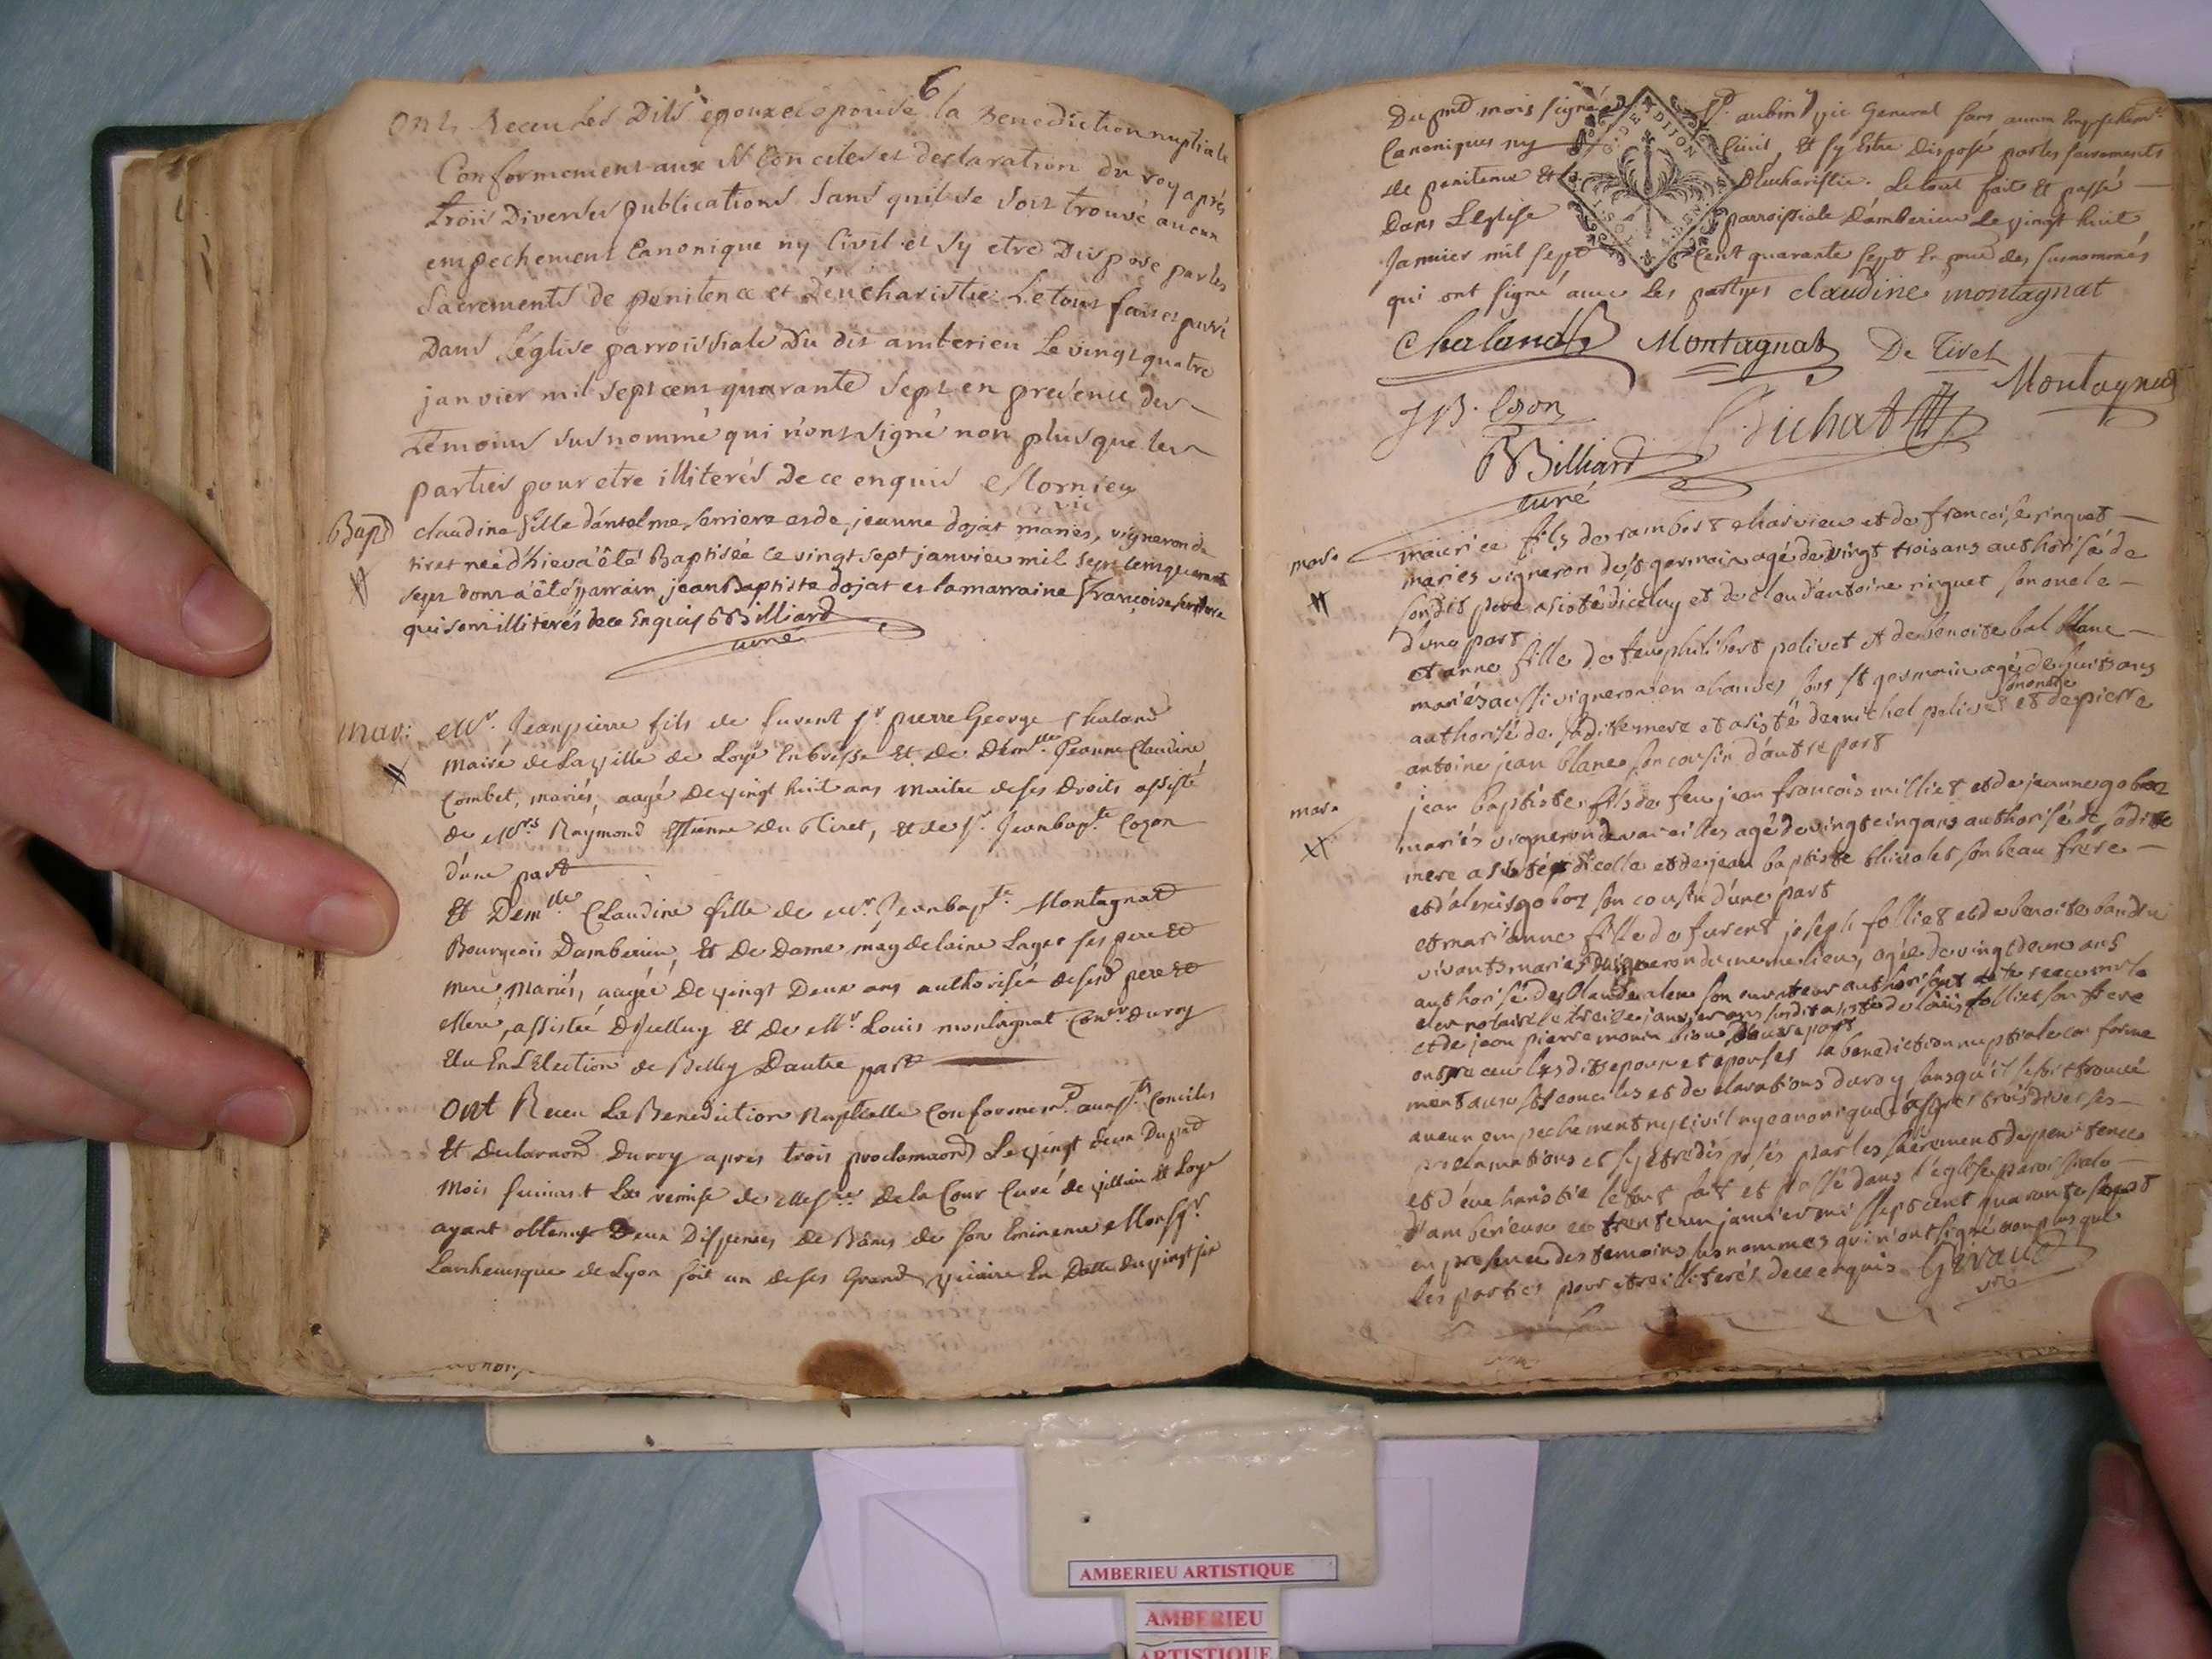 6
Onts Receu Les Dits epoux et epouse la Benediction nuptiale
Conformement aux St Conciles et declaration du roy apres
trois Diverses publications sans quil se soit trouvé aucun
empechement Canonique ny Civil et sy etre Dispose par les
Sacrements de penitence et d'eucharistie Le tout fait et passé
Dans l'église parroissiale Du dit amberieu Le vingt quatre
janvier mil sept cent quarante sept en presence des
temoins susnommé qui n'ont signé non plus que les
parties pour etre illiterés De ce enquis Mornieu
vic
Bapt claudine fille d'antelme serriere et de jeanne dojat mariés, vigneron de
tiret neé d'hier a êté Baptisée ce vingt sept janvier mil sept cent quarante
sept dont a êté parrain jean Baptiste dojat et la marraine francoise
qui sont illiterés de ce Enquis Billiard
curé
mari Mr. Jean pierre fils de furent Sr. pierre George Chaland
Maire de La ville de Loye En bresse Et de Demlle Jeanne Claudine
Combet, mariés, aagé De vingt huit ans maitre de ses Droits assisté
de Mrs Raymond Estienne du Tiret, et de Sr. Jean bapte Cozon
d'une part
Et Demlle Claudine fille de Mr. Jean bapte. Montagnat
Bourgeois D'amberieu, Et De Dame magdelaine Lager ses pere Et
Mere, Mariés, aagée De vingt Deux ans authorisée de sesd pere Et
Mere, assistée D'icelluy Et de Mr Louis montagnat Conser du roy
Elu En L'Election de Belley D'autre part
Ont Receu La Benediction Nuptialle Conformemt. aux Sts Conciles
Et Declaraon Du roy apres trois proclamaons Le vingt deux Du pnt
Mois suivant La remise de Messire De la Cour Curé de villieu Et Loye
ayant obtenu Deux Dispenses De Bans de son Eminence Monsgr.
L'archevesque de Lyon soit un de ses Grand vicaire En Datte du vingt six
Du pnt mois signé St. aubin vic General sans aucun Empechemt.
Canoniques ny Civil, Et sy Estre Disposé par les sacrements
de penitence Et D'Eucharistie. Le tout fait Et passé
Dans L'Eglise parroissiale D'amberieu Le vingt huit
G. DE DIJON
Janvier mil sept Cent quarante sept En pnce des susnommés
qui ont signé avec Les partyes claudine montagnat
Chaland Montagnat De Tiret
Montagnat
JB. Cozon Dichat
Billiard
curé
mar. maurice fils de rambert charvieu et de francoise ringuet
mariés vigneron de st germain agé de vingt trois ans authorisé de
son dit pere asisté diceluy et de claud antoine ringuet son oncle
d'une part
et anne fille de feu philibert polivet et de benoite bal blanc
mariés aussi vigneron en st germain agé de huit ans
authorisé de sa dite mere et asisté de michel polivet son oncle et de pierre
antoine jean blanc son cousin d'autre part
mar. jean baptiste fils de feu jean francois milliet et de jeanne goboz
mariés vigneron de vareilles agé de vingt cinq ans authorisé de sa dite
mere asisté d'icelle et de jean baptiste thivolet son beau frere
et d'alexis goboz son cousin d'une part
et marianne fille de furent joseph folliet et de benoite bandin
vivants mariés vigneron du meme lieu, agée de vingt deux ans
authorisé de son curateur
notaire le treize janvier asisté de loüis folliet son frere
et de jean pierre monin d'autre part
ont receu les dits epoux et epouses la benediction nuptiale conforme
ment aux sts conciles et declarations du roy sans qu'il se soit trouvé
aucun empechement ny civil ny canonique apres trois diverses
proclamations et sy etre disposés par les sacrement de penitence
et d'eucharistie le tout fait et passé dans l'eglise paroissiale
d'amberieux ce trente un janvier mil sept cent quarante sept
en presence des temoins susnommes qui n'ont signé non plus que
les parties pour etre illiterés de ce enquis Gevaud
vic
AMBERIEU ARTISTIQUE
AMBERIEU
ARTISTIQUE